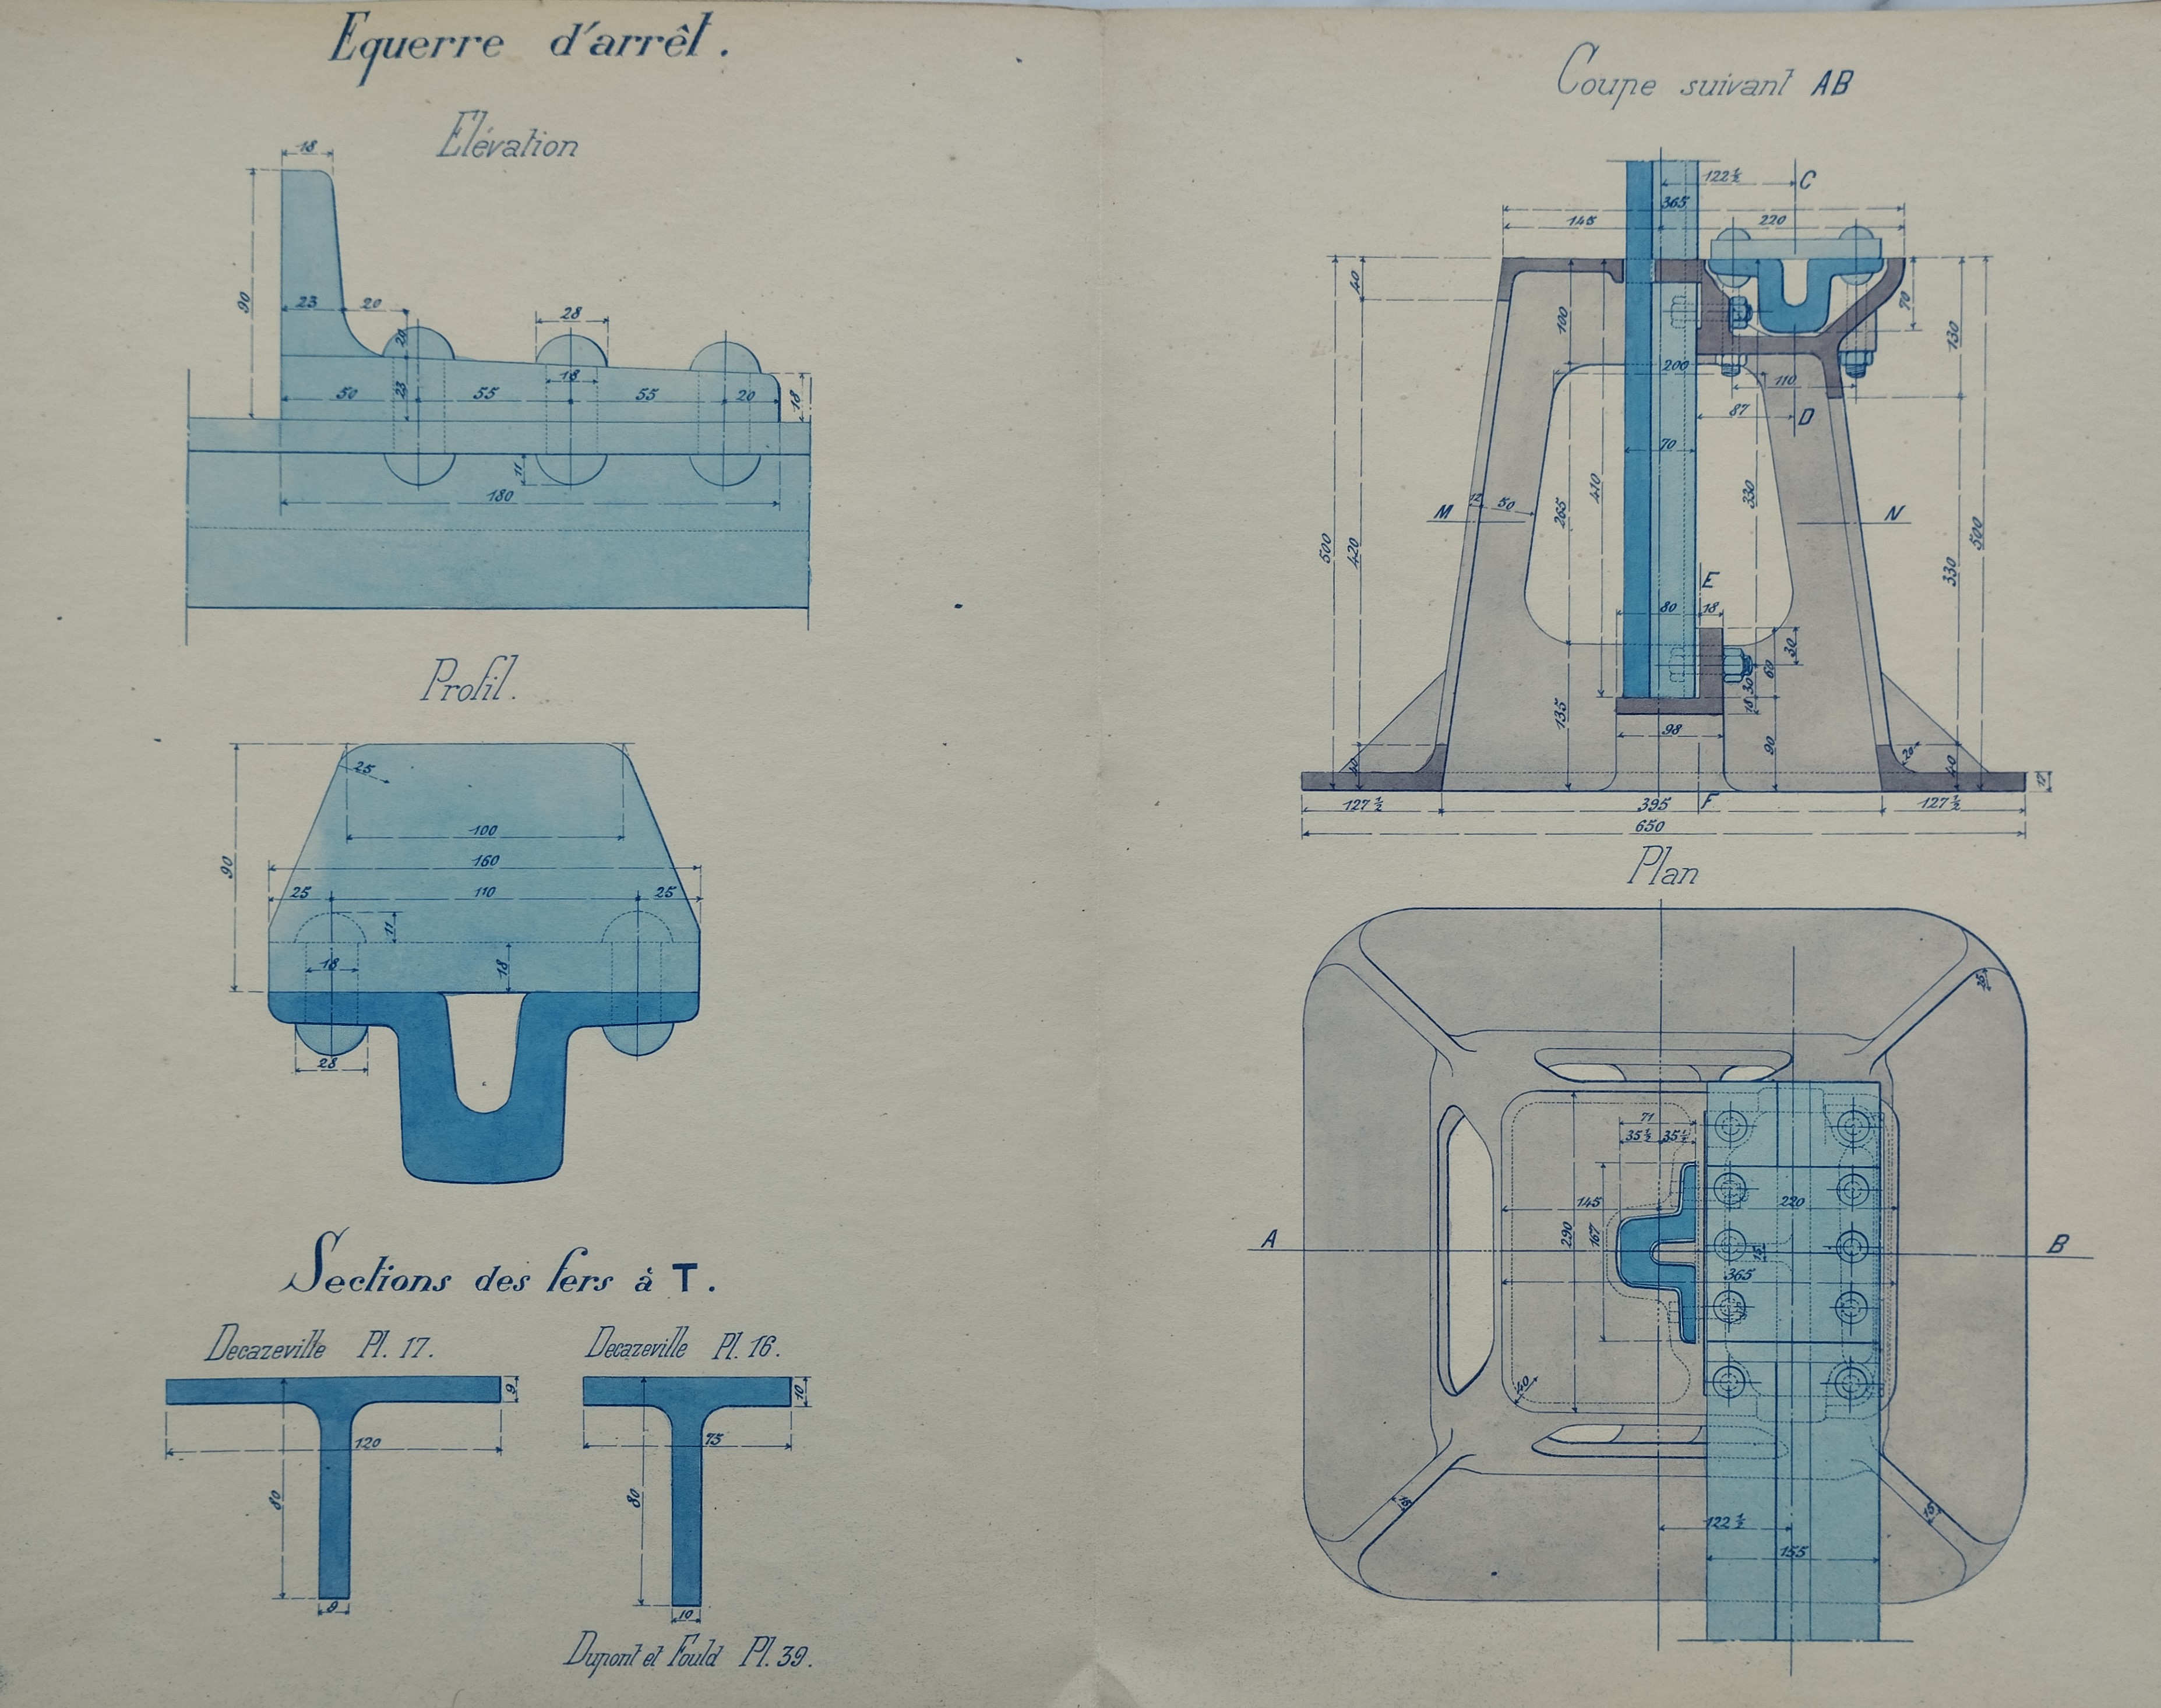 Equerre d'arrêt.
Elévation
18
90
23 20
20
28
18
50 23 55 55 20 18
11
180
Profil.
25
100
90
160
25 110 25
11
18
18
28
Sections des fers à T.
Decazeville Pl. 17.
9
120
80
9
Decazeville Pl. 16.
10
75
80
10
Dupont et Fould Pl. 39.
Coupe suivant AB
122 ½ C
365
145 220
40
100
70
130
200
110
87 D
70
M
50
N
265
410
330
500
420
330
500
E
80 18
30
60
30
18
135
98
90
40
20
40
127 ½ 395 F 127 ½
650
Plan
25
71
35 ½ 35 ½
145 220
290
167
15
A
B
365
40
15
15
122 ½
155